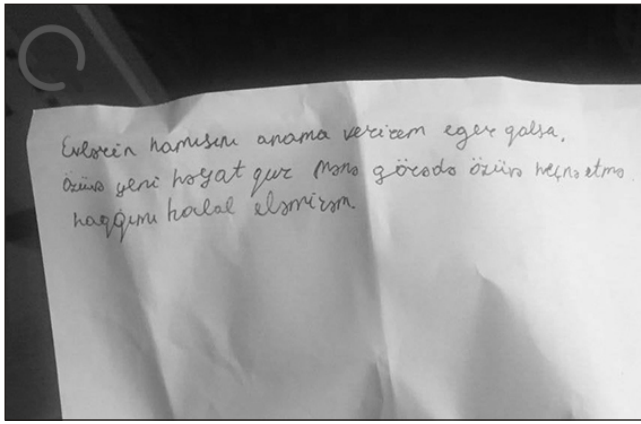 Evlərin hamısını anama verirəm eger qalsa.
Özüvə yeni həyat qur Mənə görədə özüvə heçnə etmə.
haqqımı halal eləmirəm.